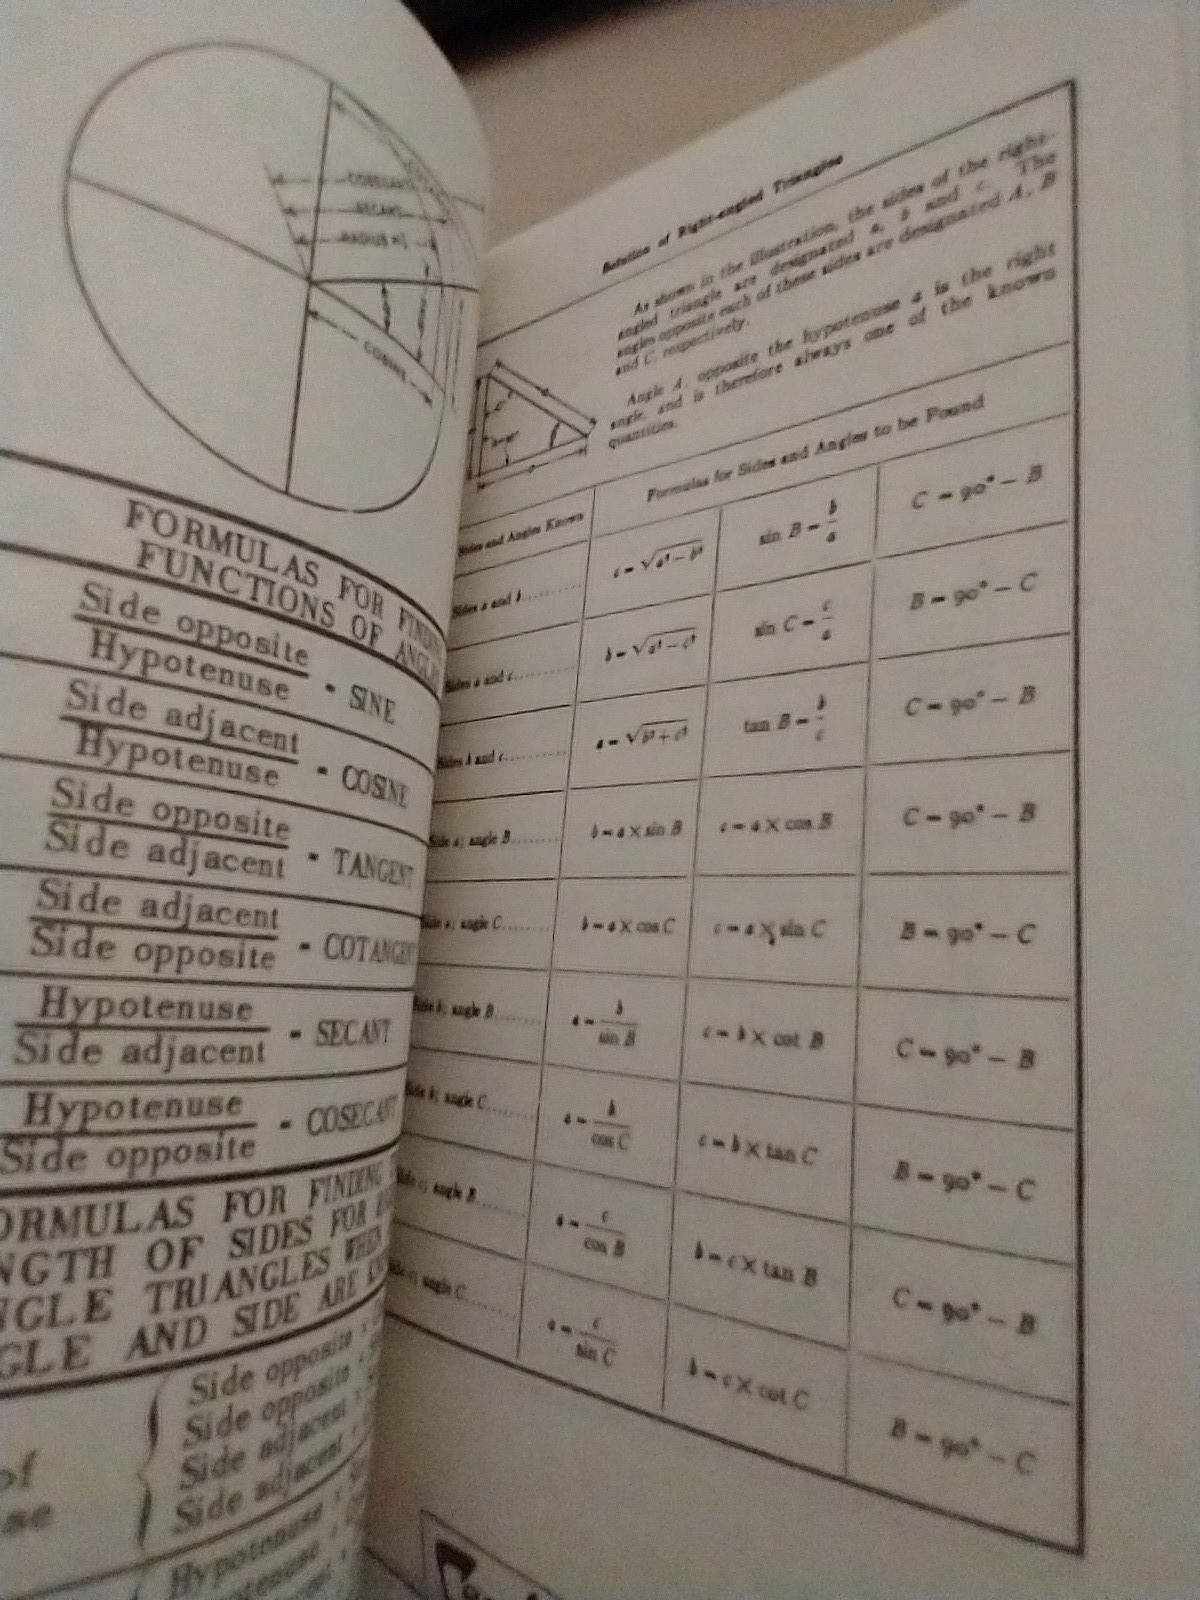 COSECANT
SECANT
RADIUS = 1
COSINE
FORMULAS FOR FINDING
FUNCTIONS OF ANGLES
Side opposite
Hypotenuse
= SINE
Side adjacent
Hypotenuse
= COSINE
Side opposite
Side adjacent
= TANGENT
Side adjacent
Side opposite
= COTANGENT
Hypotenuse
Side adjacent
= SECANT
Hypotenuse
Side opposite
= COSECANT
ORMULAS FOR FINDING
NGTH OF SIDES FOR
NGLE TRIANGLES WHEN
GLE AND SIDE ARE
Side opposite ×
Side opposite ×
Side adjacent ×
Side adjacent ×
of
Hypotenuse ×
Solution of Right-angled Triangles
As shown in the illustration, the sides of the right-
angled triangle are designated a, b and c. The
angles opposite each of these sides are designated A, B
and C, respectively.
Angle A, opposite the hypotenuse a is the right
angle, and is therefore always one of the known
quantities.
Sides and Angles Known
Formulas for Sides and Angles to be Found
Sides a and b.......... c = √a² − b² sin B = b/a C = 90° − B
Sides a and c.......... b = √a² − c² sin C = c/a B = 90° − C
Sides b and c.......... a = √b² + c² tan B = b/c C = 90° − B
Side a; angle B........ b = a × sin B c = a × cos B C = 90° − B
Side a; angle C........ b = a × cos C c = a × sin C B = 90° − C
Side b; angle B........ a = b/sin B c = b × cot B C = 90° − B
Side b; angle C........ a = b/cos C c = b × tan C B = 90° − C
Side c; angle B........ a = c/cos B b = c × tan B C = 90° − B
Side c; angle C........ a = c/sin C b = c × cot C B = 90° − C